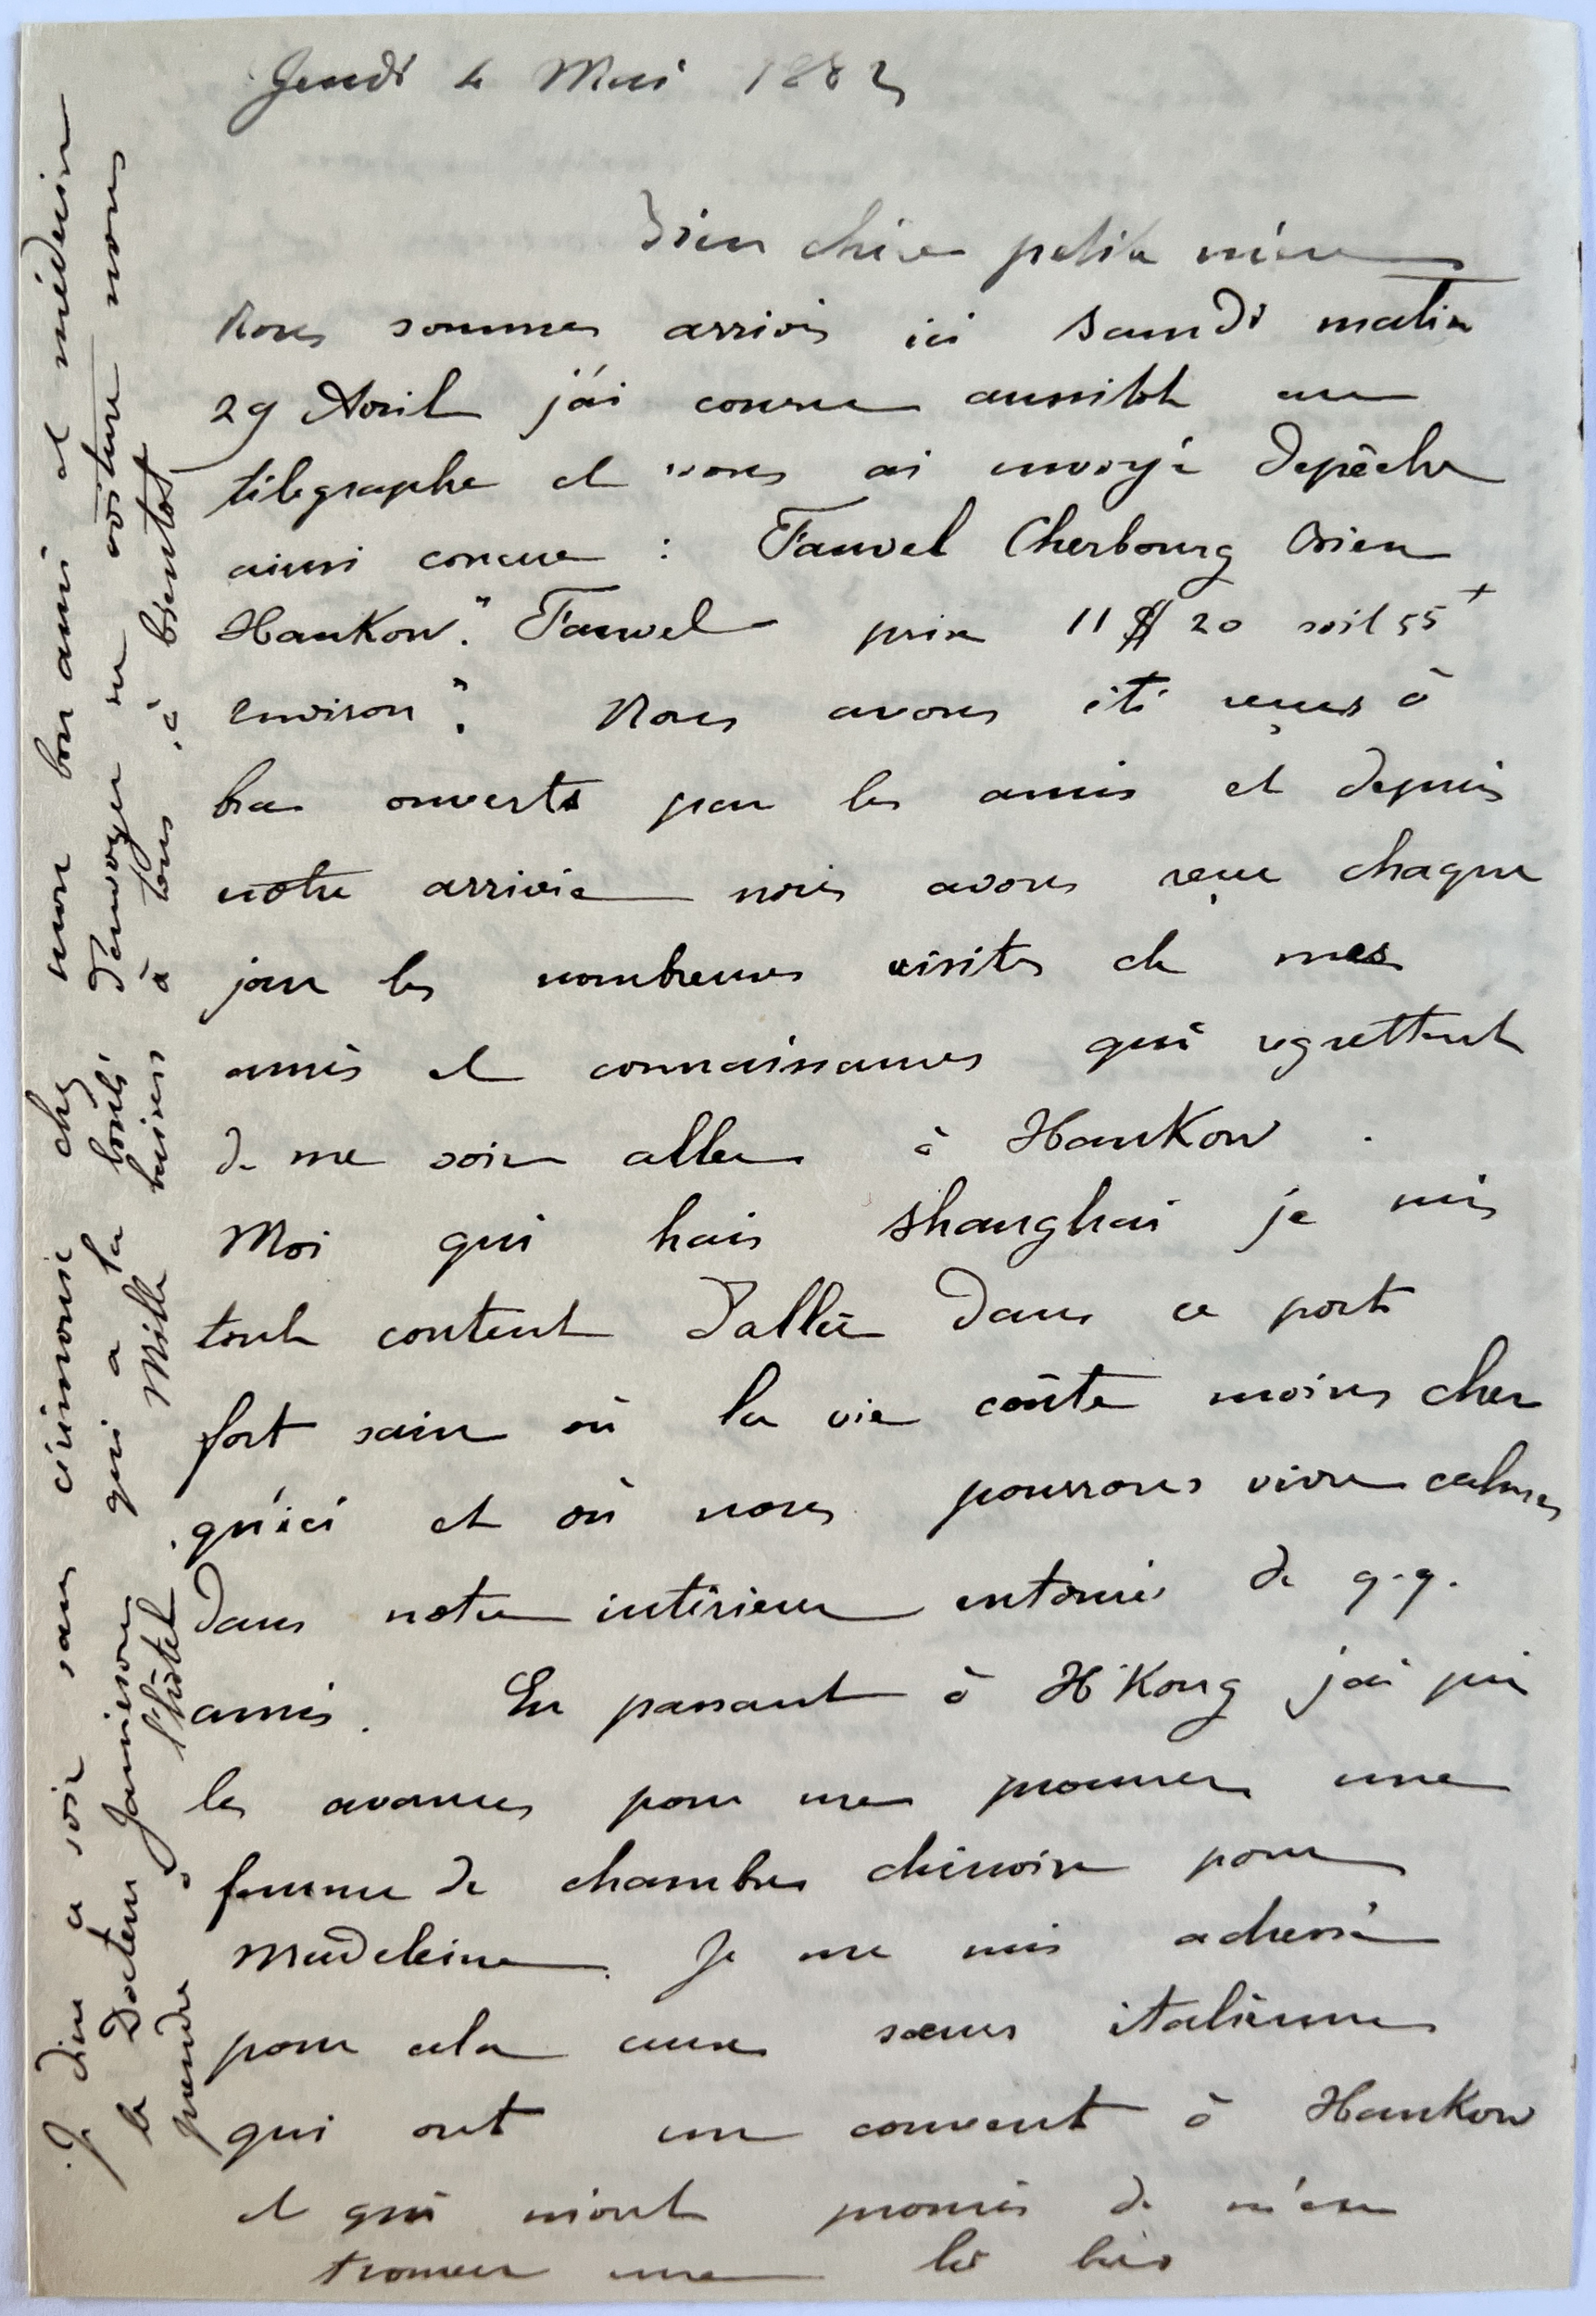 Jeudi 4 Mai 1882
Bien chère petite mère
Nous sommes arrivés ici samedi matin
29 Avril j'ai couru aussitôt au
télégraphe et vous ai envoyé dépêche
ainsi concue : Fauvel Cherbourg Bien
Hankow." Fauvel prix 11 $ 20 soit 55 +
environ". Nous avons été reçus à
bras ouverts par les amis et depuis
notre arrivée nous avons reçu chaque
jour les nombreuses visites de mes
amis et connaissances qui regrettent
de me voir aller à Hankow.
Moi qui hais Shanghai je suis
tout content d'aller dans ce port
fort sain où la vie coûte moins cher
qu'ici et où nous pourrons vivre calmes
dans notre intérieur entouré de q.q.
amis. En passant à H'Kong j'ai pris
les avances pour me procurer une
femme de chambre chinoise pour
Madeleine. Je me suis adressé
pour cela aux sœurs italiennes
qui ont un couvent à Hankow
et qui m'ont promis de m'en
trouver une
Je dine ce soir sans cérémonie chez mon bon ami et médecin
le Docteur Jamieson qui a la bonté d'envoyer sa voiture nous
prendre à l'hôtel. Mille baisers à tous, à bientôt